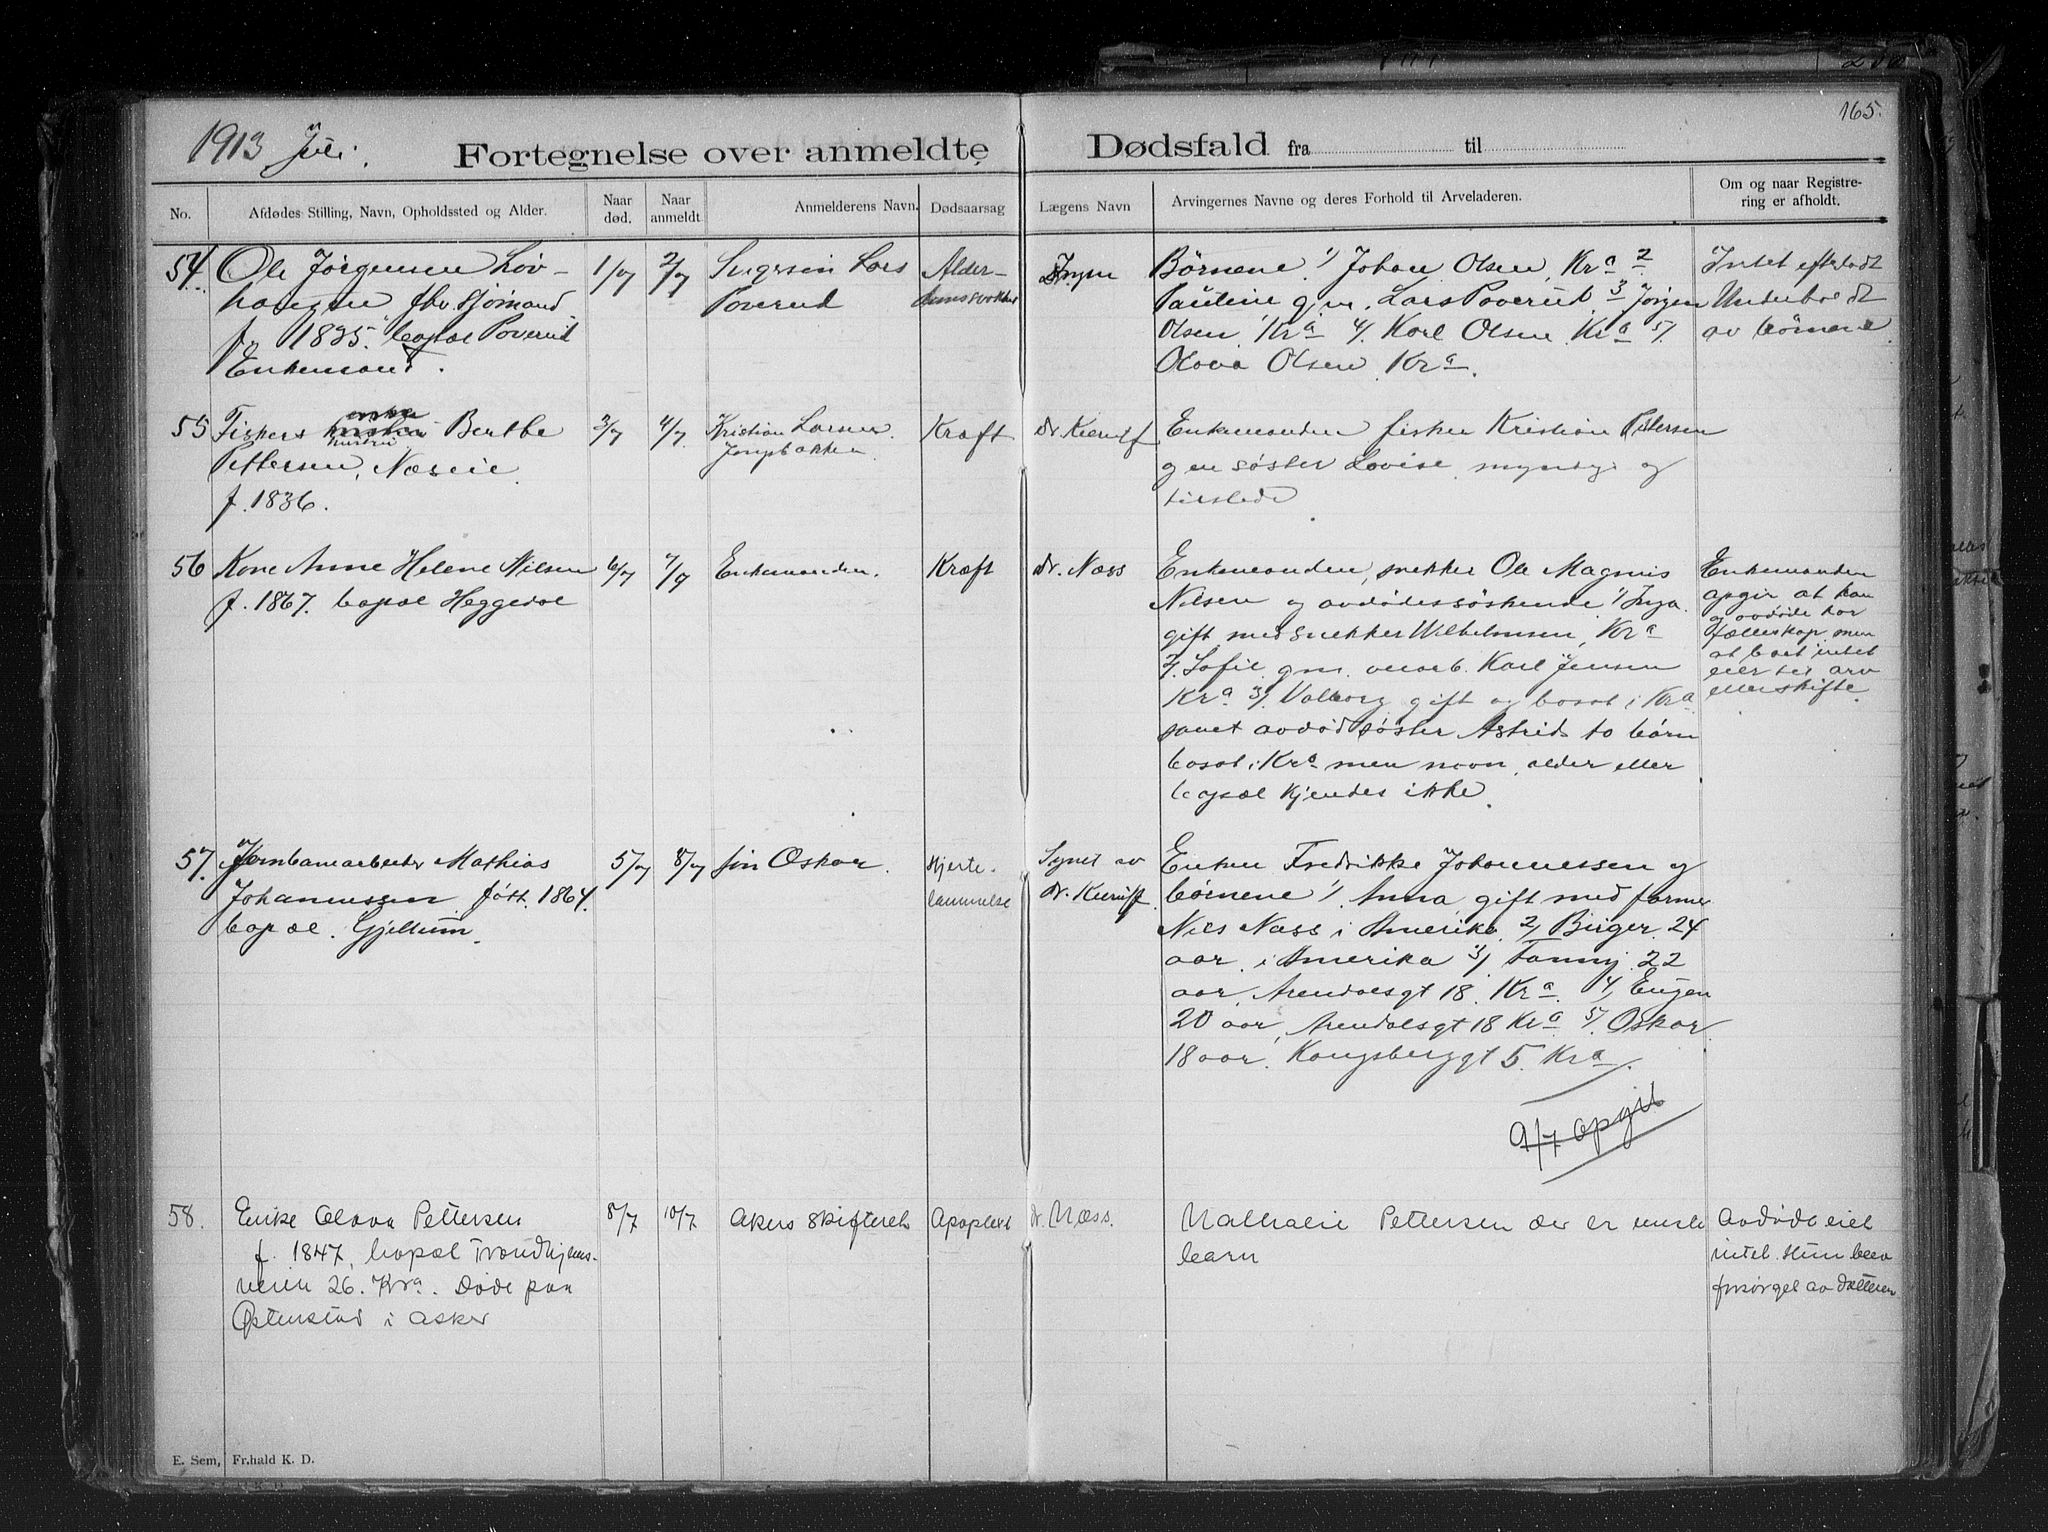 165.
1913 Juli.
Fortegnelse over anmeldte Dødsfald fra til
No.
Afdødes Stilling, Navn, Opholdssted og Alder.
Naar død.
Naar anmeldt
Anmelderens Navn.
Dødsaarsag
Lægens Navn
Arvingernes Navne og deres Forhold til Arveladeren.
Om og naar Registrering er afholdt.
54.
Ole Jørgensen Løv-
haugen fhv sjømand
f. 1835. bopæl Poverud
Enkemand.
1/7
2/7
Svigersøn Lars
Poverud
Alder-
domssvakhet
Børnene 1/ Johan Olsen Kra 2
Pauline g.m. Lars Poverud 3 Jørgen
Olsen Kra 4/. Karl Olsen Kra 5/.
Olava Olsen Kra.
Intet efterladt
Underholdt
av børnene
55
Fiskers hustru Berthe
Pettersen, Næseie.
f. 1836.
3/7
4/7.
Kristian Larsen
Kræft
Dr. Kierulf
Enkemanden fisker Kristian Pettersen
og en søster Lovise myndig og
tilstede
56
Kone Anne Helene Nilsen
f. 1867. bopæl Heggedal
6/7
7/7
Enkemanden.
Kræft
Dr. Næss
Enkemanden, snekker Ole Magnus
Nilsen og avdødes søskende 1/ Inga
gift med snekker Wilhelmsen, Kra
2/. Sofie g.m. Karl Jensen
Kra 3/. Valborg gift og bosat i Kra
samt avdød søster Astrids to børn
bosat i Kra men navn, alder eller
bopæl kjendes ikke.
Enkemanden
opgir at han
og avdøde har
fælleskap men
at boet intet
eier til arv
eller skifte.
57.
Jernbanearbeider Mathias
Johannessen født 1864.
bopæl. Gjellum.
5/7
8/7
søn Oskar.
Hjerte-
lammelse
Synet av
dr. Kierulf.
Enken Fredrikke Johannessen og
børnene 1/. Anna gift med farmer
Nils Næss i Amerika 2/ Birger 24
aar i Amerika 3/ Fanny 22
aar, Arendalsgt 18. Kra. 4/ Eugen
20 aar, Arendalsgt 18 Kra 5/. Oskar
18 aar, Kongsberggt 5. Kra.
9/7 opgit
58.
Enke Olava Pettersen
f. 1847, bopæl Trondhjems-
veien 26. Kra. Døde paa
Opstenstad i Asker
8/7
10/7
Akers skifteret
Apoplexi
dr. Næss.
Nathalie Pettersen der er eneste
barn
Avdøde eiet
intet. Hun blev
forsørget av datteren
E. Sem, Fr.hald K. D.